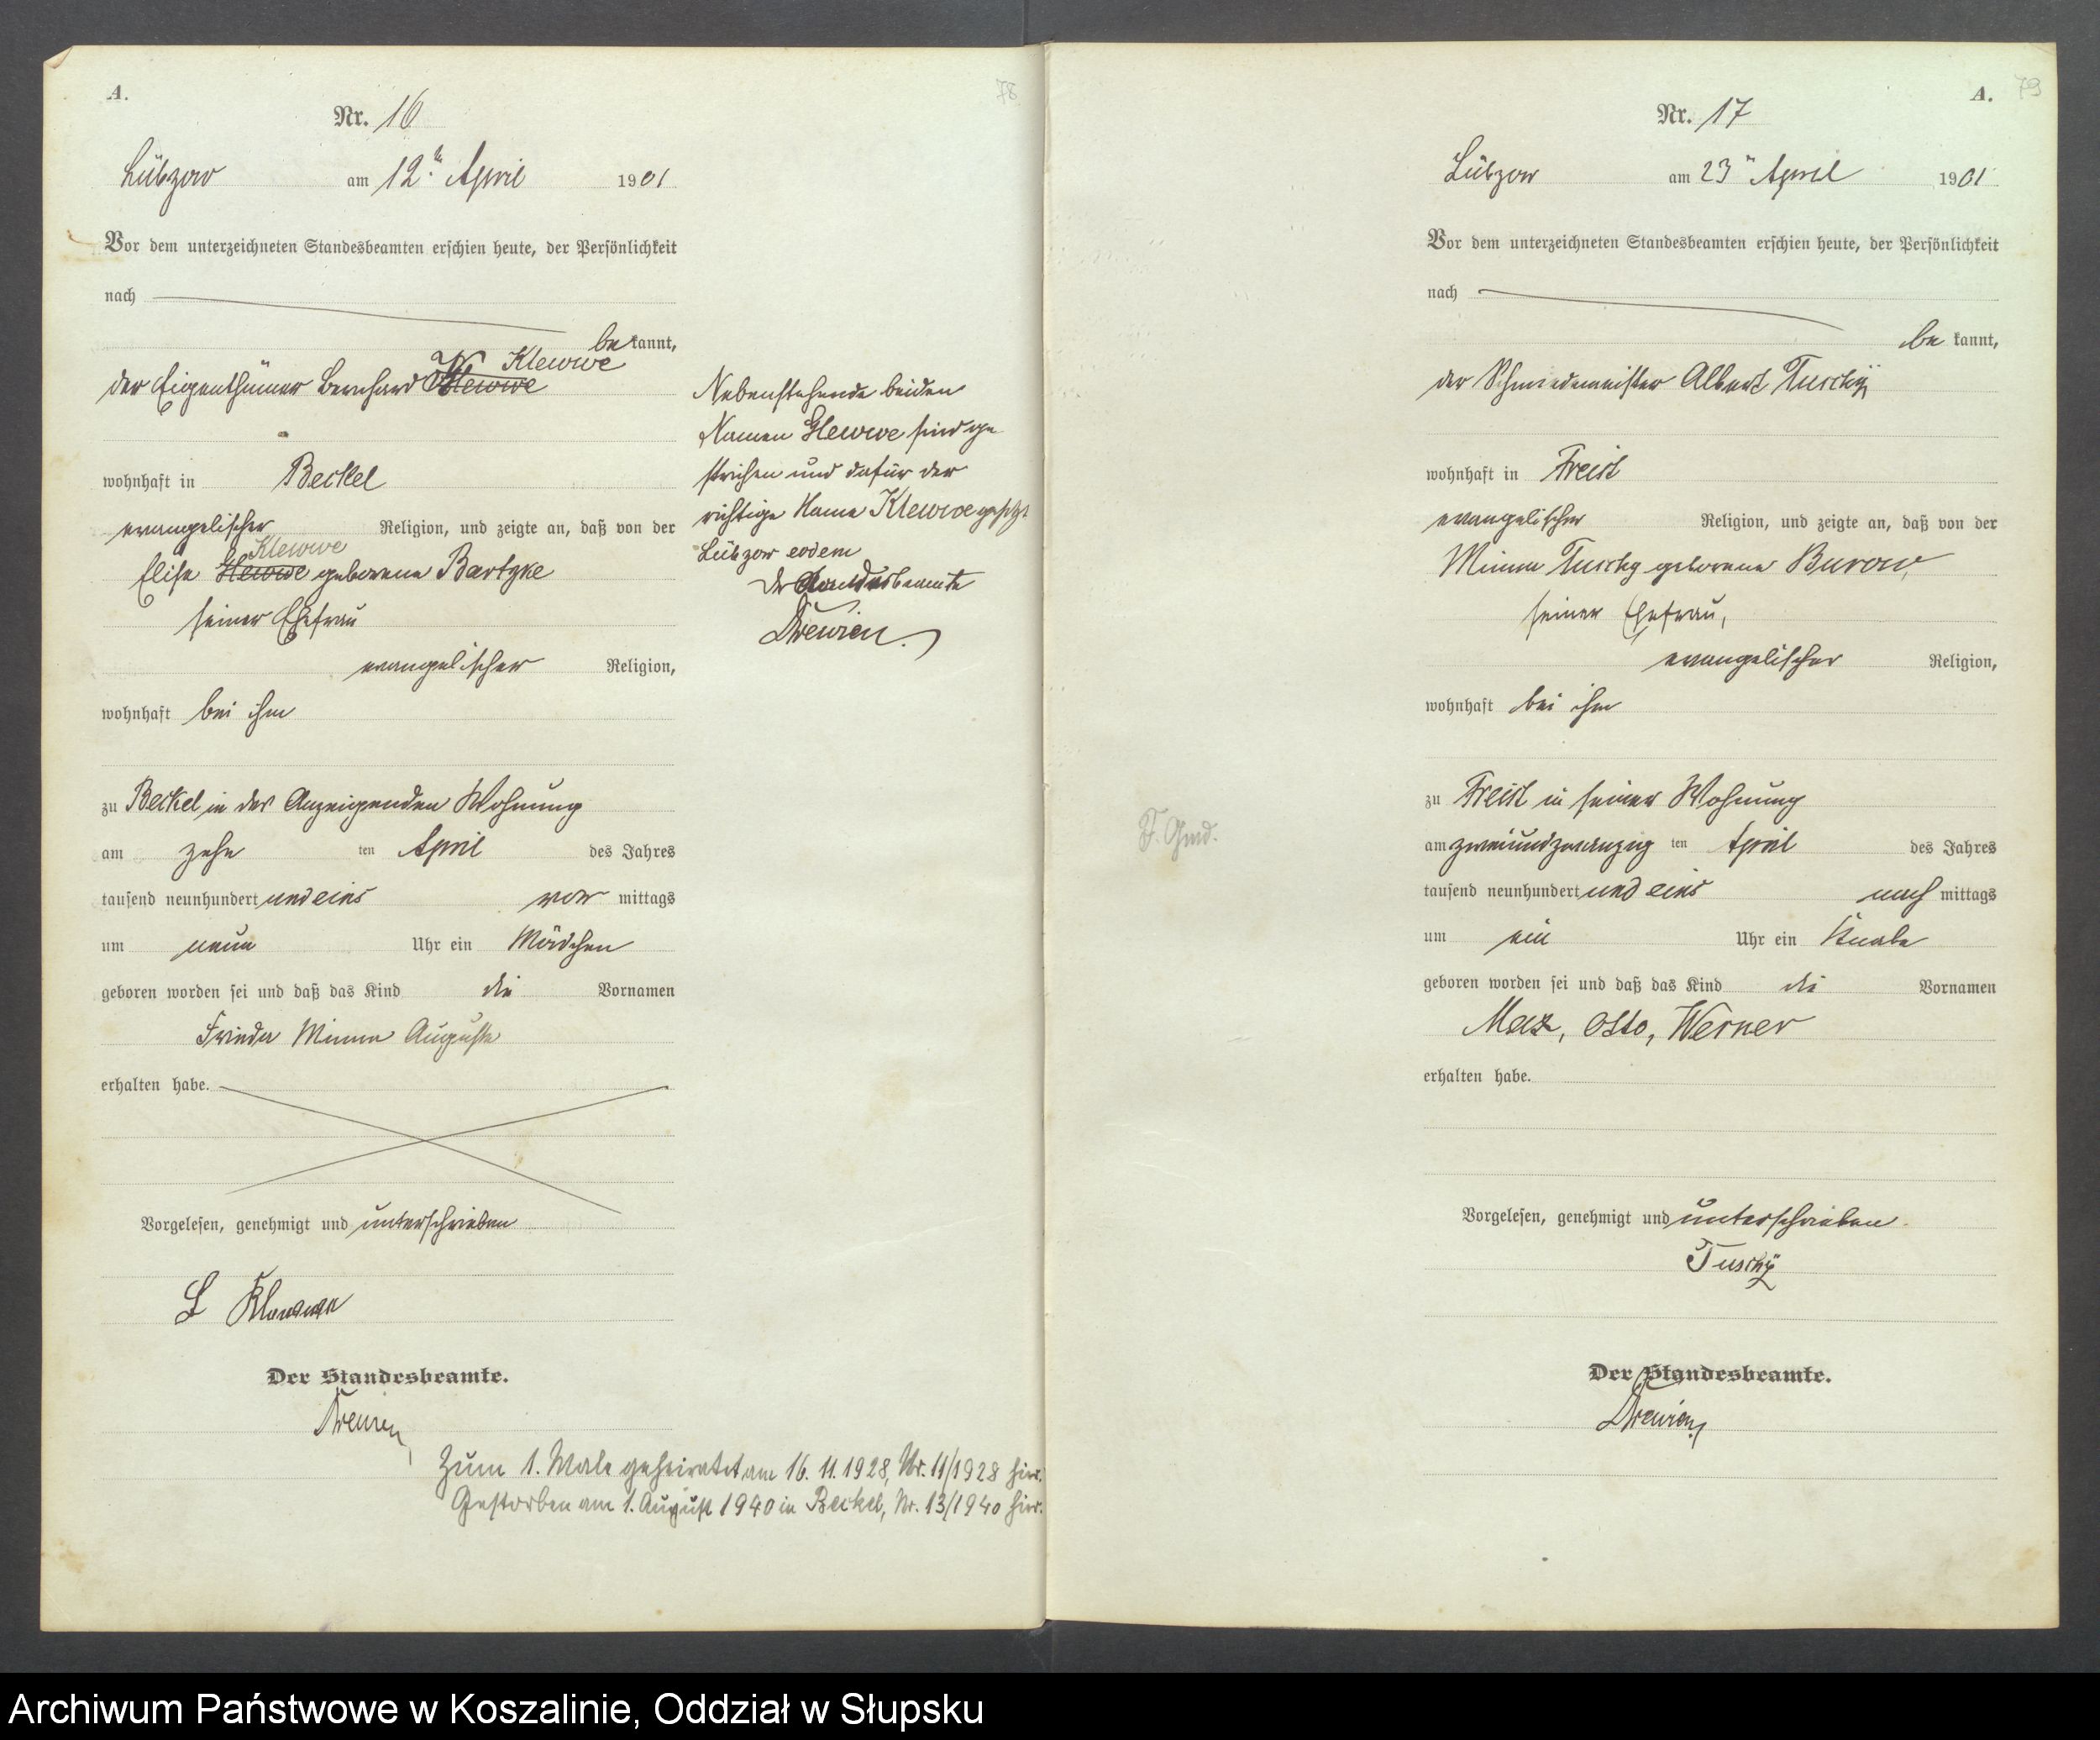 A.
78
Nr. 16
Lübzow am 12ⁿ April 1901
Vor dem unterzeichneten Standesbeamten erschien heute, der Persönlichkeit
nach
be kannt,
Klewwe
der Eigenthümer Bernhard Hlewwe
wohnhaft in Beckel
evangelischer Religion, und zeigte an, daß von der
Klewwe
Elise Hlewwe geborene Bartzke
seiner Ehefrau
evangelischer Religion,
wohnhaft bei ihm
zu Beckel in des Anzeigenden Wohnung
am zehn ten April des Jahres
tausend neunhundert und eins vor mittags
um neun Uhr ein Mädchen
geboren worden sei und daß das Kind die Vornamen
Frieda Minna Auguste
erhalten habe.
Vorgelesen, genehmigt und unterschrieben
Der Standesbeamte.
Drewien
Nebenstehende beiden
Namen Hlewwe sind ge
strichen und dafür der
richtige Name Klewwe gesetzt
Lübzow eodem
Der Standesbeamte
Drewien.
Zum 1. Male geheiratet am 16. 11. 1928, Nr. 11/1928 hier.
Gestorben am 1. August 1940 in Beckel, Nr. 13/1940 hier.
A.
79
Nr. 17
Lübzow am 23ⁿ April 1901
Vor dem unterzeichneten Standesbeamten erschien heute, der Persönlichkeit
nach
be kannt,
der Schmiedemeister Albert Tuschÿ
wohnhaft in Freist
evangelischer Religion, und zeigte an, daß von der
Minna Tuschy geborene Burow,
seiner Ehefrau,
evangelischer Religion,
wohnhaft bei ihm
zu Freist in seiner Wohnung
am zweiundzwanzig ten April des Jahres
tausend neunhundert und eins nach mittags
um ein Uhr ein Knabe
geboren worden sei und daß das Kind die Vornamen
Max, Otto, Werner
erhalten habe.
Vorgelesen, genehmigt und unterschrieben.
Tuschÿ
Der Standesbeamte.
Drewien
Archiwum Państwowe w Koszalinie, Oddział w Słupsku